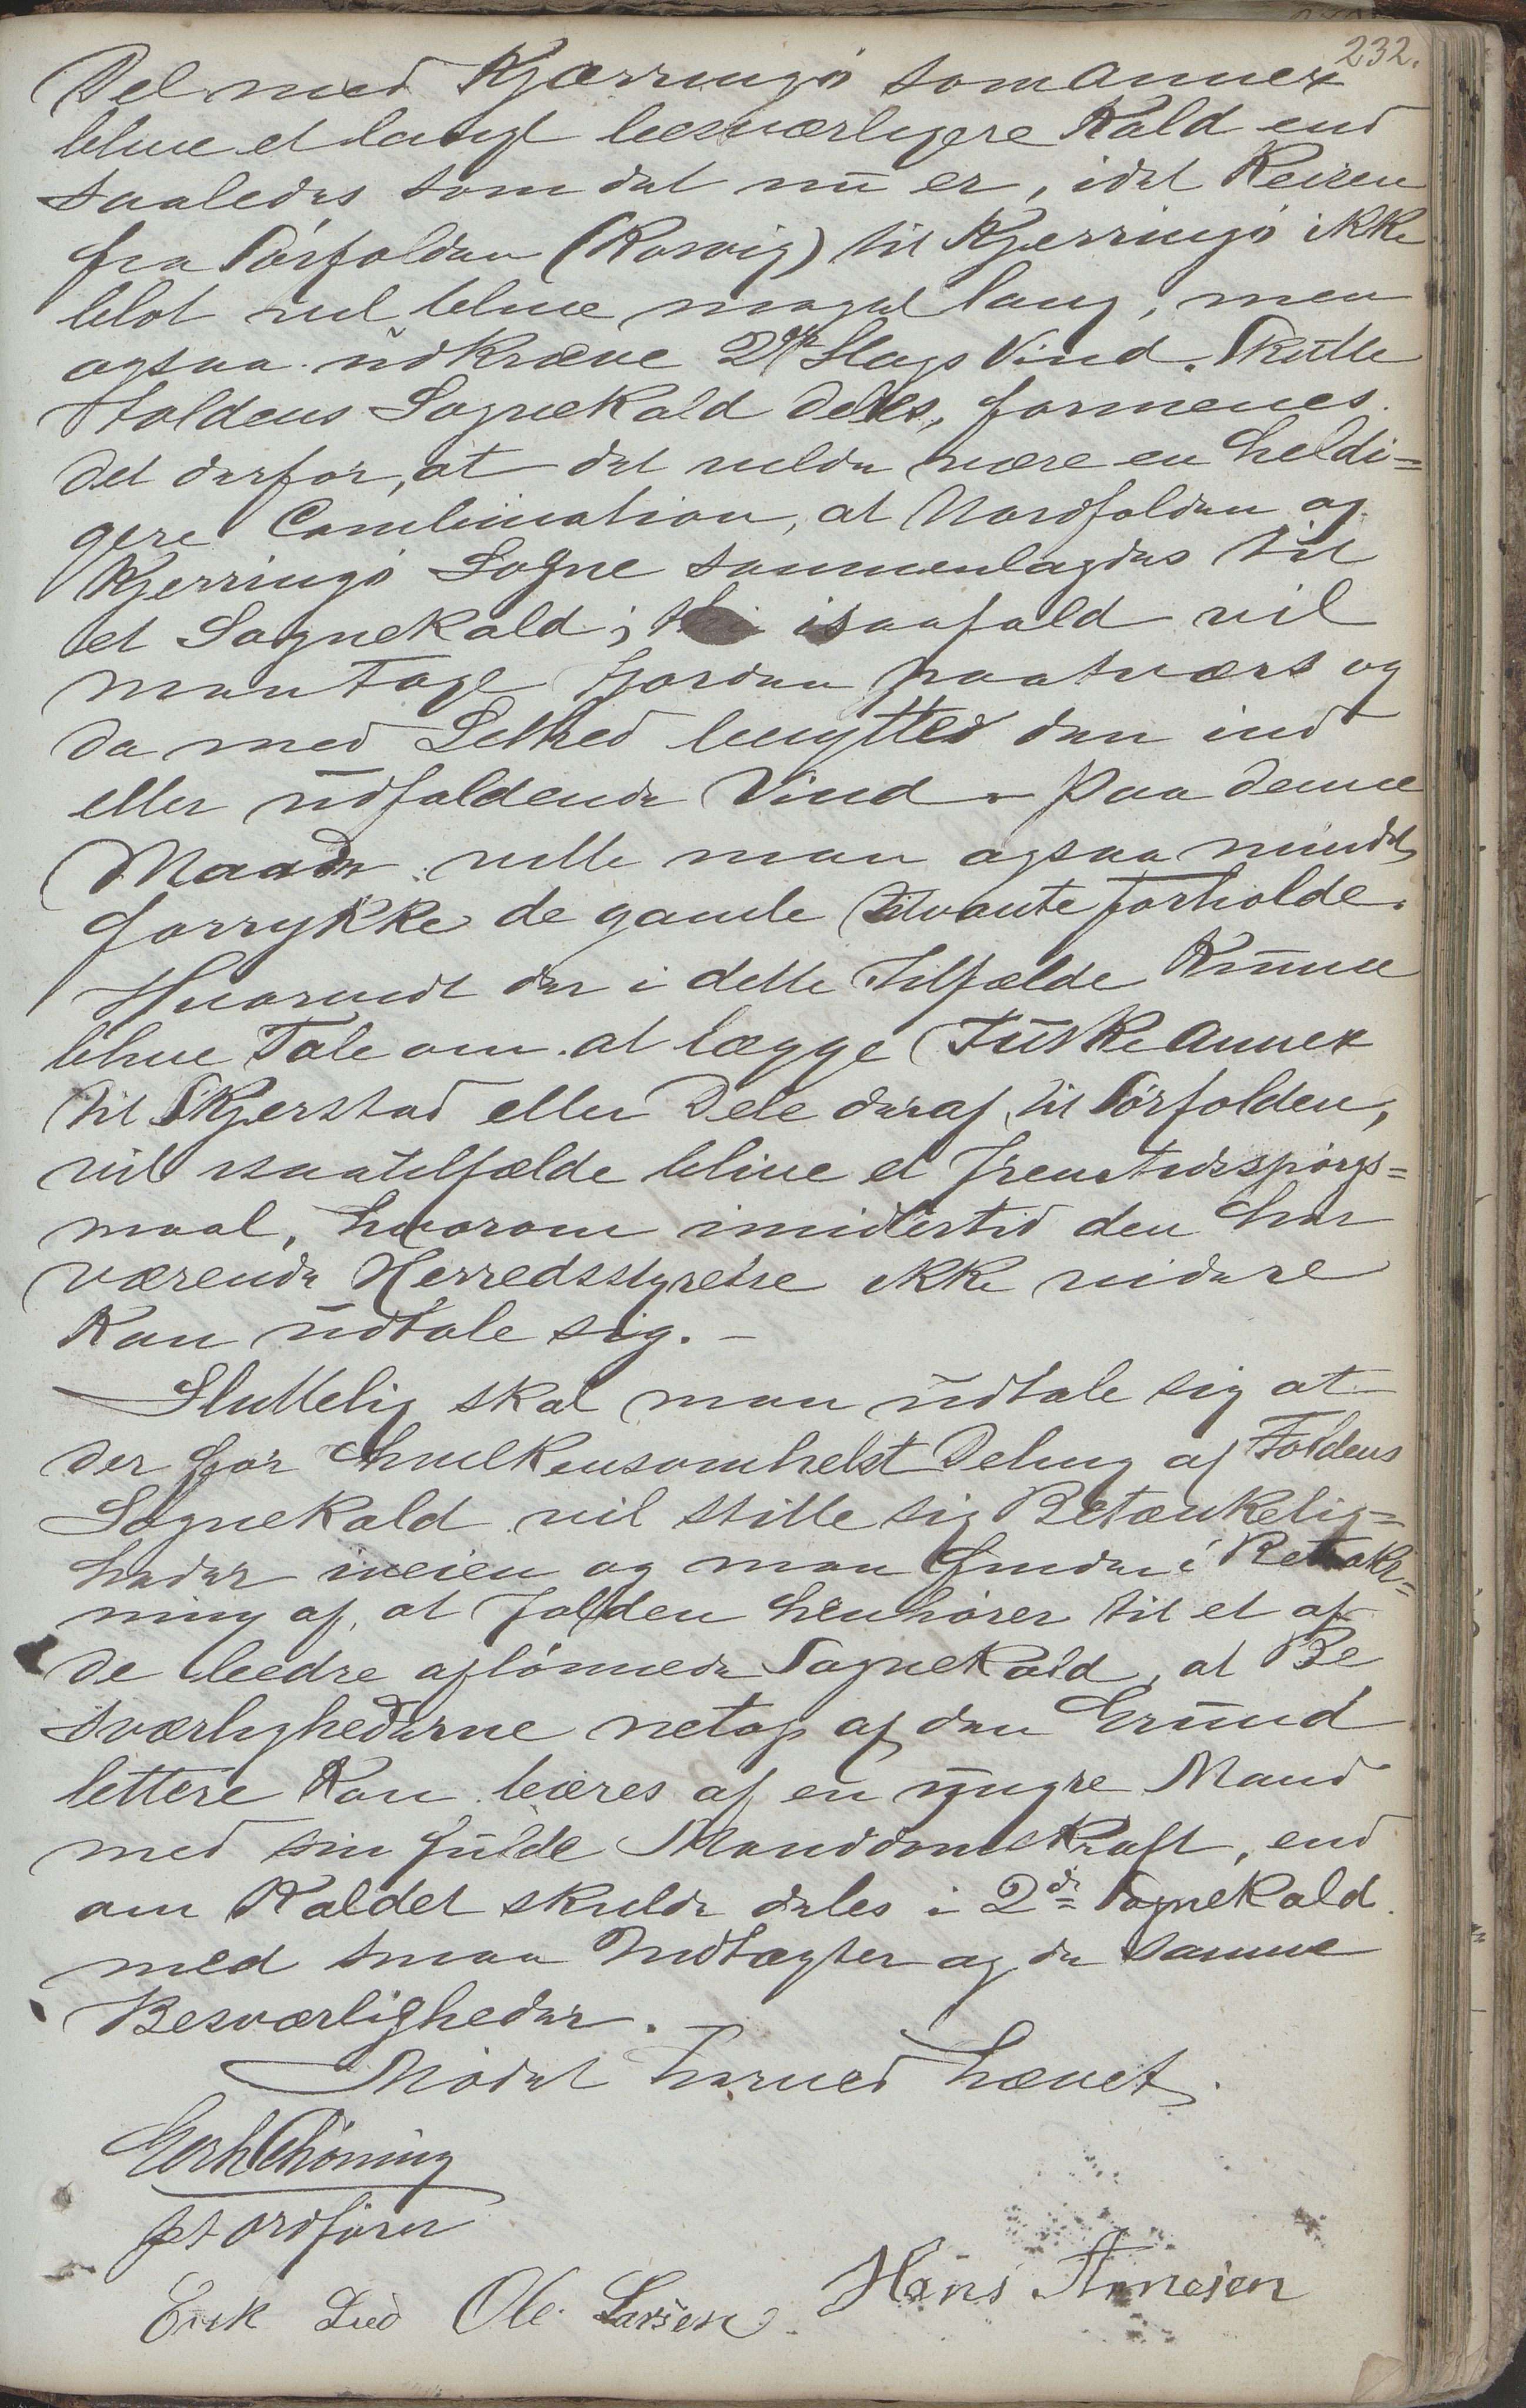 232.
Del med Kjærringø som Annex
blive et langt besværligere Kald end
saaledes som det nu er, idet Reisen
fra Sørfolden (Rosvig) til Kjerringø ikke
blot vil blive meget lang, men
ogsaa udkræve 2de Slags Vind. Skulle
Foldens Sognekald deles, formenes
det derfor, at det vilde være en heldi=
gere Combination, at Nordfolden og
Kjerringø Sogne sammenlagdes til
et Sognekald; thi isaafald vil
man tage Fjorden paatvers og
da med Lethed benytted den ind
eller udfaldende Vind – Paa denne
Maade ville man ogsaa mindst
forrykke de gamle tilvante forholde.
Hvorvidt der i dette Tilfælde kunne
blive Tale om at lægge Fuske Annex
til Skjerstad eller Dele deraf til Sørfolden,
vil isaatilfælde blive et Fremtidsspørgs=
maal, hvorom imidlertid den her
værende Herredsstyrelse ikke videre
kan udtale sig. –
Sluttelig skal man udtale sig at
der for hvilkensomhelst Deling af Foldens
Sognekald vil stille sig Betænkelig=
heder iveien og man finder i Betrakt=
ning af, at Folden henhører til et af
de bedre aflønnede Sognekald, at Be
sværlighederne netop af den Grund
lettere kan bæres af en yngre Mand
med sin fulde Manddomskraft, end
om Kaldet skulde deles i 2de Sognekald
med smaa Indtægter og de samme
Besværligheder. –
Mødet hermed hævet.
Gerh Schøning
fst ordfører
Erik Lied Ole Larsen Hans Arnesen